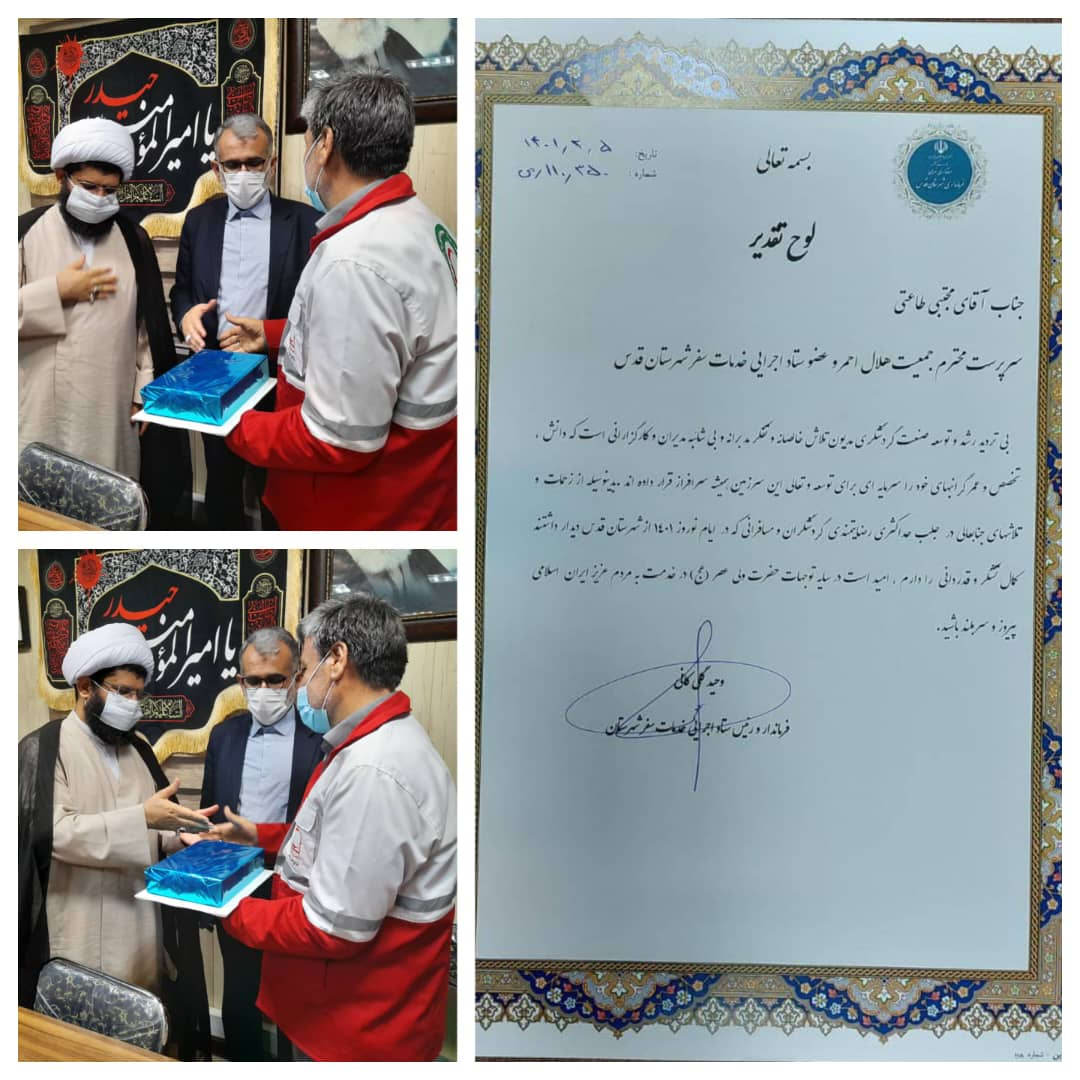 یا امیرالمؤمنین
حیدر
یا امیرالمؤمنین
حیدر
بسمه تعالی
تاریخ: ۱۴۰۱٫۲٫۵
شماره:
لوح تقدیر
جناب آقای مجتبی طاعتی
سرپرست محترم جمعیت هلال احمر و عضو ستاد اجرایی خدمات سفر شهرستان قدس
بی تردید رشد و توسعه صنعت گردشگری مدیون تلاش خالصانه و تفکر مدبرانه و بی شائبه مدیران و کارگزارانی است که دانش ،
تخصص و عمر گرانبهای خود را سرمایه ای برای توسعه و تعالی این سرزمین همیشه سرافراز قرار داده اند . بدینوسیله از زحمات و
تلاشهای جنابعالی در جلب حداکثری رضایتمندی گردشگران و مسافرانی که در ایام نوروز ۱۴۰۱ از شهرستان قدس دیدار داشتند
کمال تشکر و قدردانی را دارم ، امید است در سایه توجهات حضرت ولی عصر (عج) در خدمت به مردم عزیز ایران اسلامی
پیروز و سربلند باشید.
وحید گلی کانی
فرماندار و رئیس ستاد اجرایی خدمات سفر شهرستان